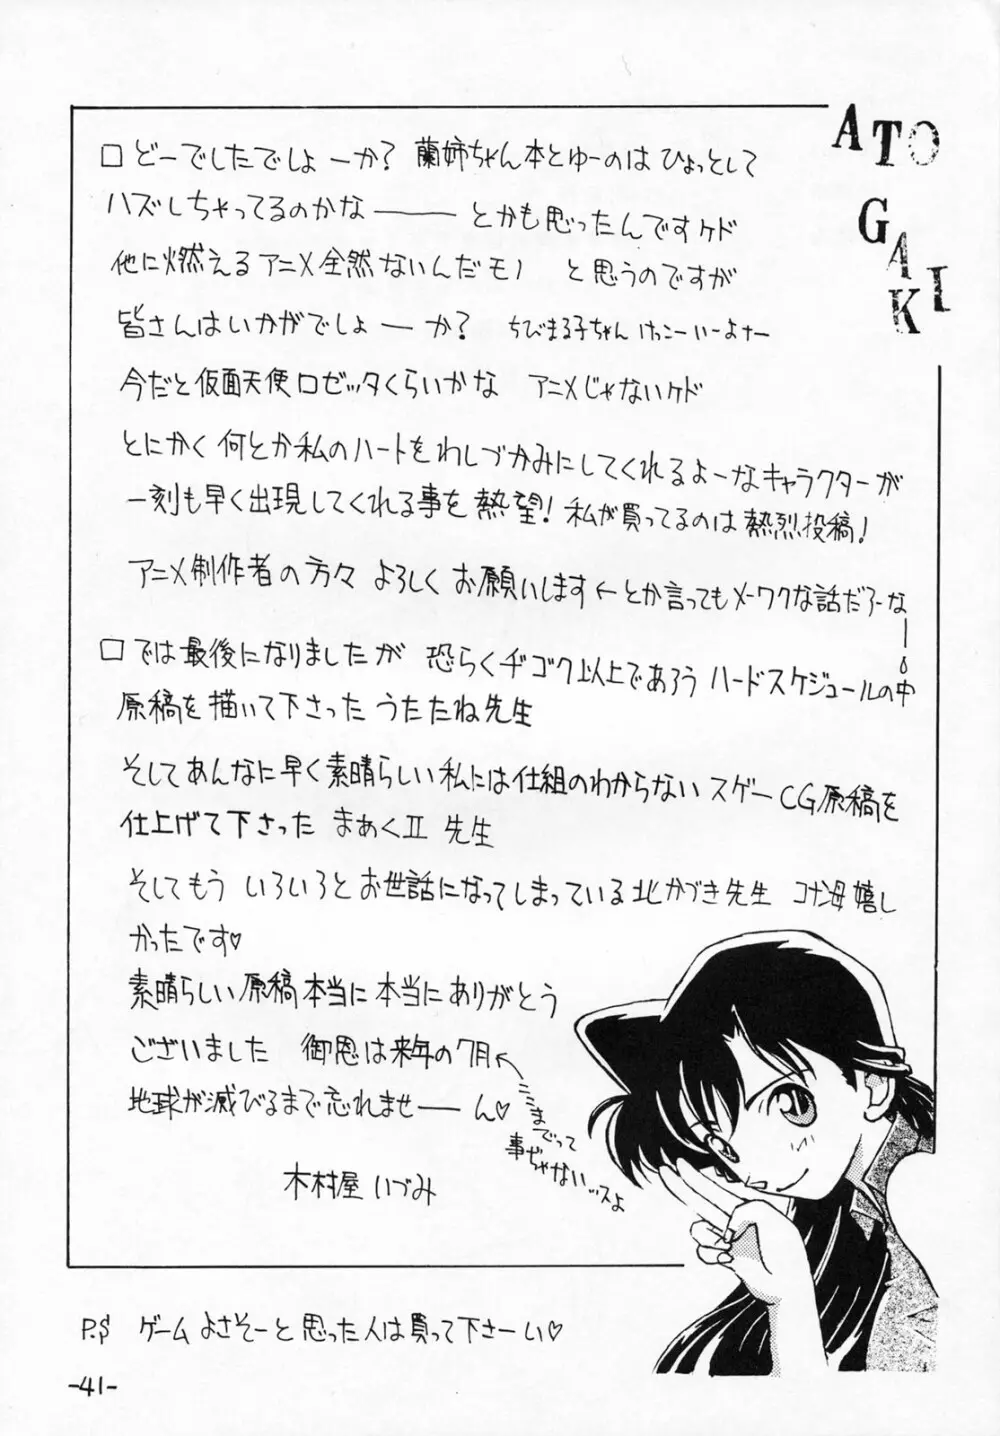 ATO
GAKI
□ どーでしたでしょーか? 蘭姉ちゃん本とゆーのは ひょっとして
ハズしちゃってるのかなー とかも思ったんですケド
他に燃えるアニメ全然ないんだモノ と思うのですが
皆さんはいかがでしょーか? ちびまる子ちゃん けっこーいーよナー
今だと仮面天使ロゼッタくらいかな アニメじゃないケド
とにかく 何とか私のハートをわしづかみにしてくれるよーなキャラクターが
一刻も早く出現してくれる事を 熱望! 私が買ってるのは 熱烈投稿!
アニメ制作者の方々 よろしく お願いします ←とか言ってもメーワクな話だろーなー
□ では最後になりましたが 恐らくヂゴク以上であろう ハードスケジュールの中
原稿を描いて下さった うたたね先生
そしてあんなに早く素晴らしい私には仕組のわからない スゲーCG原稿を
仕上げて下さった まぁくII 先生
そしてもう いろいろと お世話になってしまっている北かづき先生 コナン母嬉し
かったです♡
素晴らしい原稿本当に本当にありがとう
ございました 御恩は来年の7月
地球が滅びるまで忘れませーん♡
ここまでって
事ぢゃない…スよ
木村屋いづみ
P.S ゲーム よさそーと 思った人は買って下さーい♡
-41-